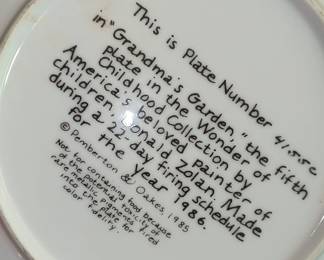 This is Plate Number 4155C
in "Grandma's Garden," the fifth
plate in the Wonder of
Childhood Collection by
America's beloved painter of
children, Donald Zolan. Made
during a 22-day firing schedule
for the year 1986.
© Pemberton & Oakes, 1985
Not for containing food because
of the potential toxicity of
rare metallic pigments fired
into the plate for
color fidelity.